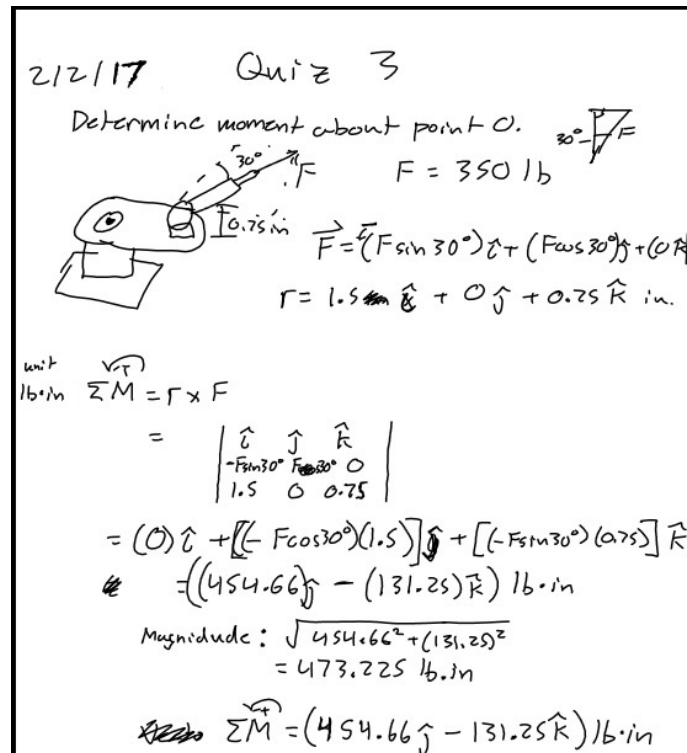 2/2/17 Quiz 3
Determine moment about point O.
30° F
30° F F = 350 lb
0.75 in
F = -(F sin 30°) î + (F cos 30°) ĵ + (0 k̂)
r = 1.5 î + 0 ĵ + 0.75 k̂ in.
unit
lb·in ΣM = r x F
= | î ĵ k̂ |
-Fsin30° Fcos30° 0
1.5 0 0.75
= (0) î + [(-Fcos30°)(1.5)] ĵ + [(-Fsin30°)(0.75)] k̂
= ((454.66) ĵ - (131.25) k̂) lb·in
Magnidude: √454.66² + (131.25)²
= 473.225 lb.in
ΣM = (454.66 ĵ - 131.25 k̂) lb·in